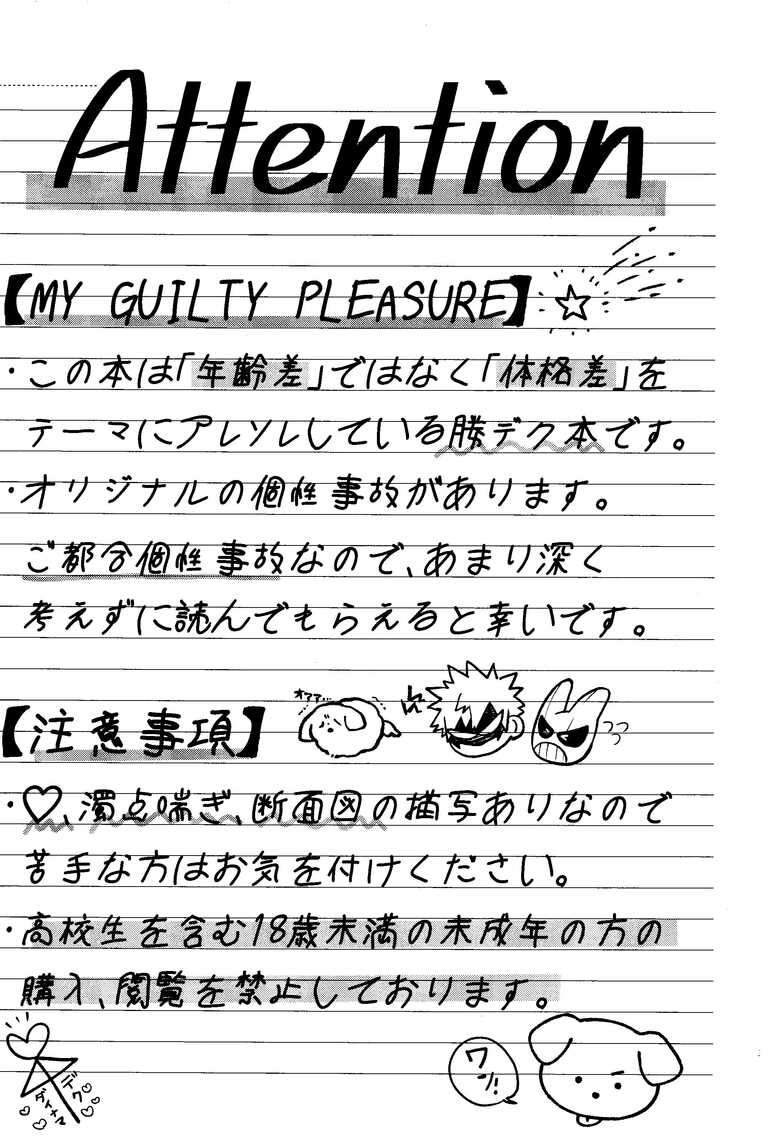 Attention
【MY GUILTY PLEASURE】
・この本は「年齢差」ではなく「体格差」を
テーマにアレソレしている勝デク本です。
・オリジナルの個性事故があります。
ご都合個性事故なので、あまり深く
考えずに読んでもらえると幸いです。
オアアア...
【注意事項】
・♡、濁点喘ぎ、断面図の描写ありなので
苦手な方はお気を付けください。
・高校生を含む18歳未満の未成年の方の
購入、閲覧を禁止しております。
デク
ダイナマ
ワン!